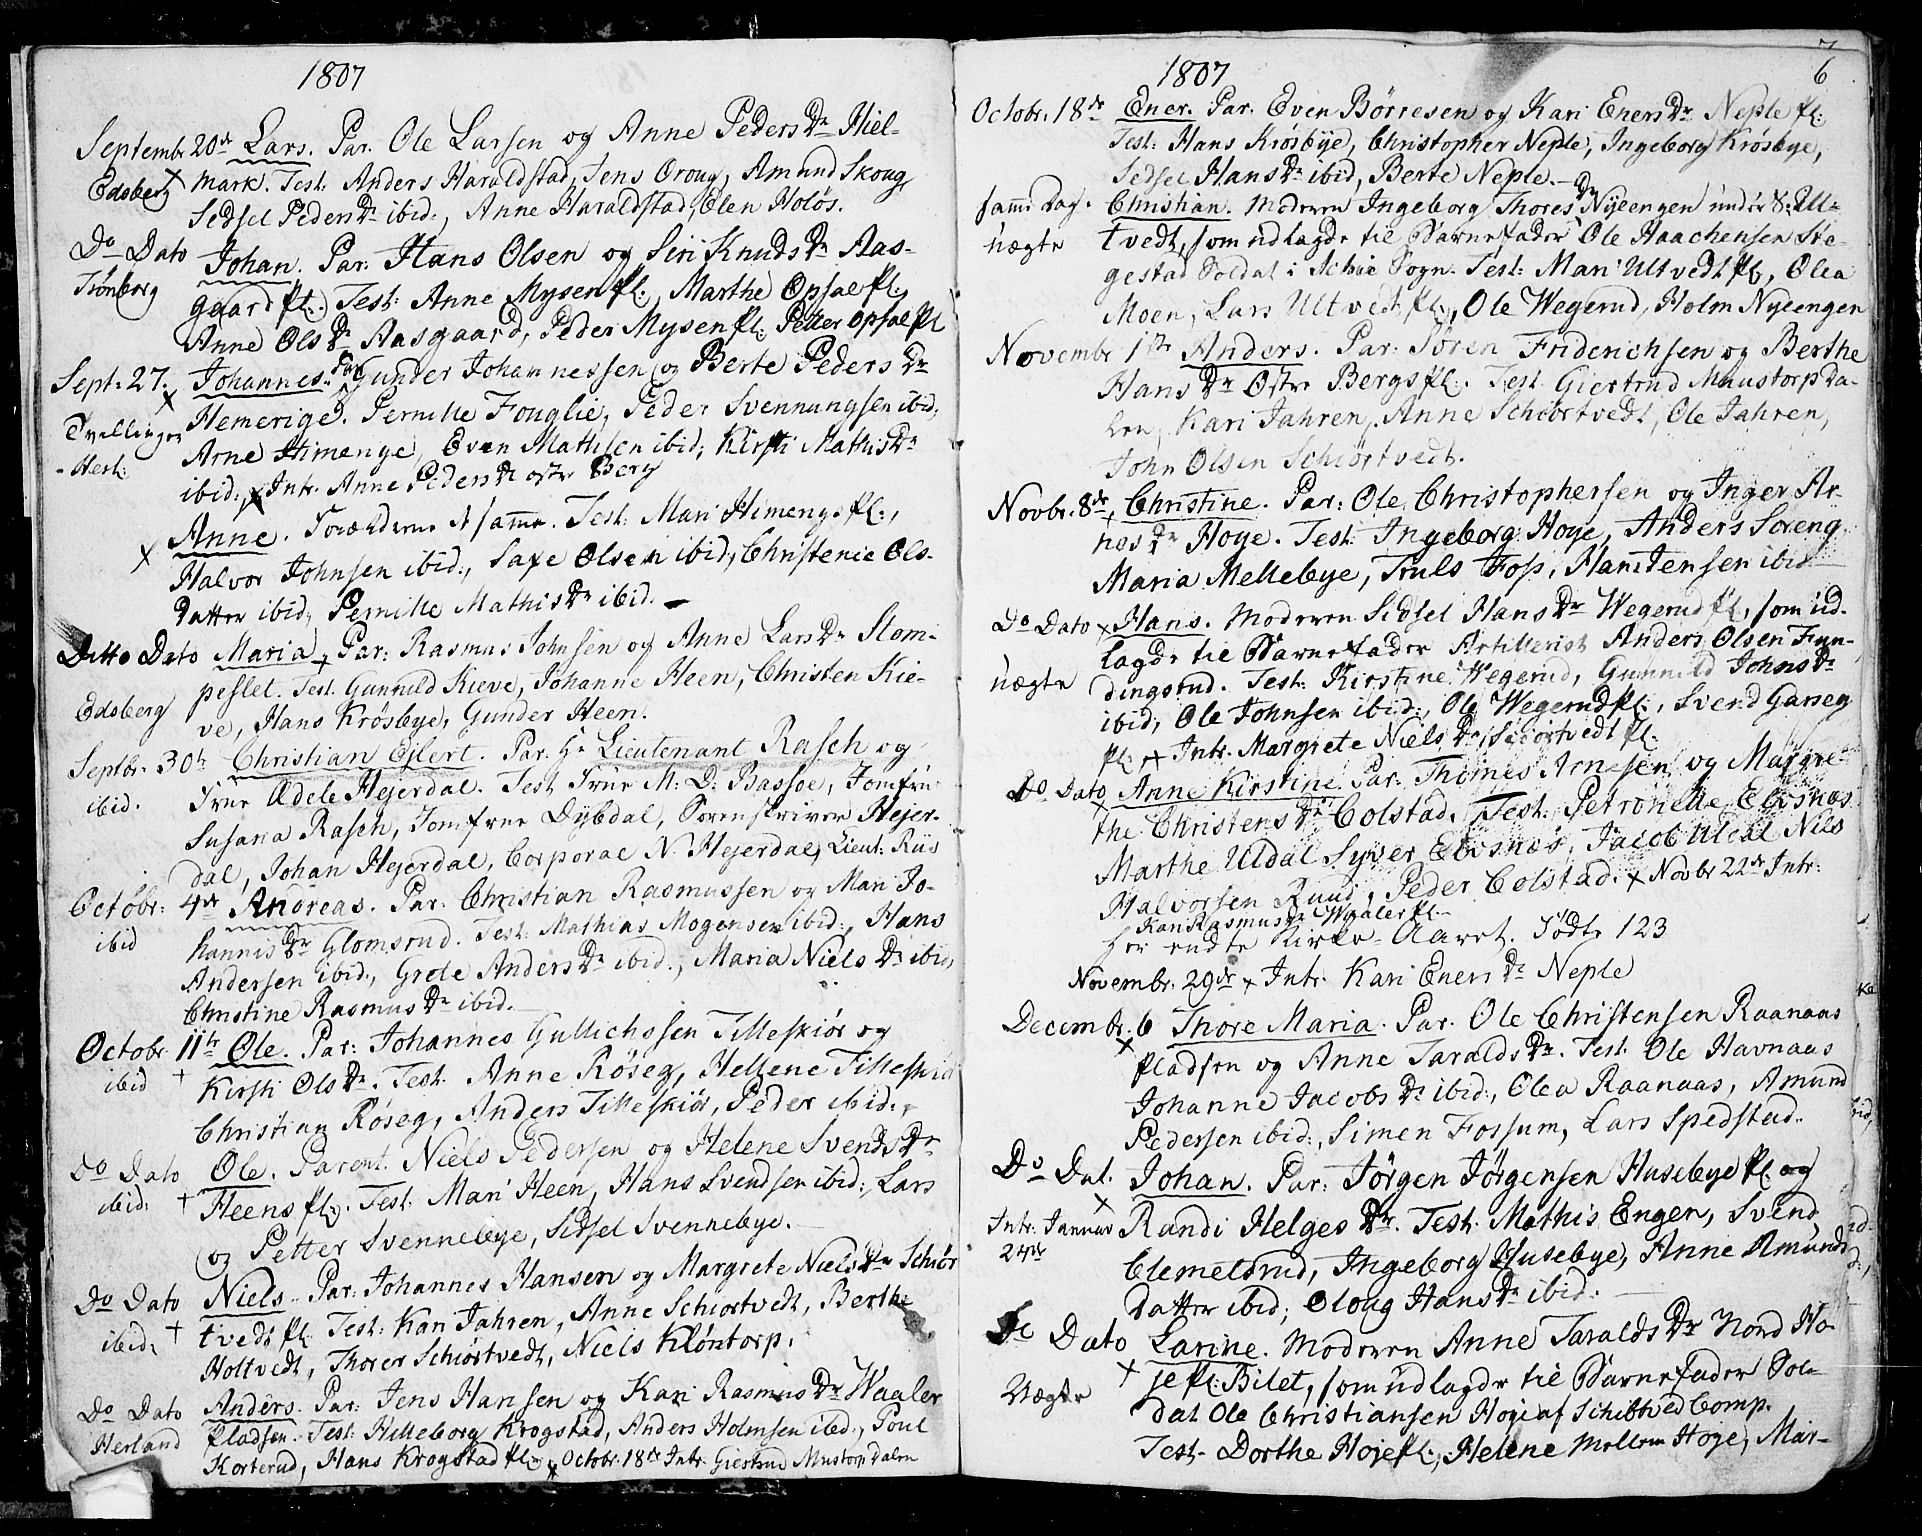 1807
Septembr 20de Lars. Par. Ole Larsen og Anne PedersDr Hiel-
Edsberg x mark. Test. Anders Haraldstad, Jens Oroug, Amund Skoug,
Sidsel PedersDr ibid., Anne Haraldstad, Elen Holøs.
Do Dato Johan. Par: Hans Olsen og Siri KnudsDr Aas-
Trønborg gaard pl. Test: Anne Mysen pl:, Marthe Opsal pl.
Anne OlsDr Aasgaard, Peder Mysen pl: Petter Opsal pl
Sept: 27. x Johannes. Par Gunder Johannessen og Berte PedersDr
Hemerige. Pernille Fouglie, Peder Svennungsen ibid,
Tvellinger Arne Himenge, Even Mathisen ibid, Kirsti MathisDr
- Herl: ibid:, x Intr. Anne PedersDr ostr Berg
x Anne. Forældrene d samme. Test: Mari Himenge pl:,
Halvor Johnsen ibid:, Saxe Olsen ibid, Christence Ols-
datter ibid, Pernille MathisDr ibid.
Ditto Dato Maria x Par: Rasmus Johnsen og Anne LarsDr Slom-
peslet. Test. Gunnild Kieve, Johanne Heen, Christen Kie-
Edsberg ve, Hans Krøsbye, Gunder Heen.
Septbr. 30te Christian Eilert. Par. Hr Lieutenant Rasch og
ibid. Frue Adele Hejerdal. Test Frue M: D: Bassøe, Jomfru
Susana Rasch, Jomfrue Dybdal, Sorenskriver Hejer-
dal, Johan Hejerdal, Corporal N Hejerdal, Lieut: Riis
Octobr: 4de Andreas. Par: Christian Rasmussen og Mari Jo-
ibid hannisDr Glomsrud. Test. Mathias Mogensen ibid:, Hans
Andersen ibid., Grete AndersDr ibid., Maria NielsDr ibid,
Christine RasmusDr ibid.
Octobr 11te Ole. Par: Johannes Gullichssen Tilleskiør og
ibid † Kirsti OlsDr. Test. Anne Røseg, Hellene Tilleskiør
Christian Røseg, Anders Tilleskiør, Peder ibid.
Do Dato Ole. Parent. Niels Pedersen og Helene SvendsDr
ibid: † Heens pl:. Test. Mari Heen, Hans Svendsen ibid:, Lars
og Petter Svennebye, Sidsel Svennebye.
Do Dato Niels. Par: Johannes Hansen og Margrete NielsDr Schiør
ibid: † tvedt pl: Test: Kari Jahren, Anne Schiørtvedt, Berthe
Holtvedt, Thorer Schiørtvedt, Niels Kløntorp.
Do Dato Anders. Par: Jens Hansen og Kari RasmusDr Waaler
Herland pladsen. Test: Hilleborg Krogstad, Anders Holmsen ibid., Poul
Korterud, Hans Krogstad pl: x Octobr. 18de Intr. Giertrud Mustorp Dalen
1807
7
6
Octobr. 18de Ener. Par. Even Børresen og Kari EnersDr Neple pl:
Test: Hans Krøsbye, Christopher Neple, Ingeborg Krøsbye,
Sedsel HansDr ibid, Berte Neple.
samme Dag. Christian. Moderen Ingeborg ThoresDr Nyeengen under S: Ul-
uægte tvedt, som udlagde til Barnefader Ole Haachensen Ste-
gestad Soldat i Schie Sogn. Test: Mari Ultvedt pl, Olea
Moen, Lars Ultvedt pl, Ole Wegerud, Holm Nyeengen
Novembr 1ste Anders. Par: Søren Friderichsen og Berthe
HansDr Østre Bergs pl. Test Giertrud Maustorp Da-
len, Kari Jahren, Anne Schiørtvedt, Ole Jahren,
John Olsen Schiørtvedt.
Novbr. 8de, Christine. Par: Ole Christophersen og Inger Ar-
nesDr Hoye. Test: Ingeborg Hoye, Anders Soreng
Maria Mellebye, Truls Foss, Hans Jensen ibid
Do Dato x Hans. Moderen Sidsel HansDr Wegerud pl, som ud-
lagde til Barnefader Artillerist Anders Olsen Fun-
uægte dingsrud. Test: Kirstine Wegerud, Gunnild JohnsDr
ibid, Ole Johnsen ibid:, Ole Wegerud pl., Svend Garseg
pl: x Intr. Margrete NielsDr Schiørtvedt pl.
Do Dato x Anne Kirstine. Par: Thomes Arnesen og Margre-
the ChristensDr Colstad. Test: Petronelle Elvsnøs
Marthe Uldal Syver Elvsnøs, Jacob Uldal Nils
Halvorsen Ruud, Peder Colstad. x Novbr 22de Intr:
Kari RasmusDr Waaler pl.
her endte Kirke-Aaret. Fødte 123
Novembr: 29de x Intr. Kari EnersDr Neple
Decembr. 6 x Thore Maria. Par. Ole Christensen Raanaas
pladsen og Anne TaraldsDr. Test. Ole Havnaas
Johanne JacobsDr ibid:, Olea Raanaas, Amund
Pedersen ibid:, Simen Fossum, Lars Spedstad.
Do Dat. x Johan. Par: Jørgen Jørgensen Husebye pl. og
Intr. Januar 24de Randi HelgesDr. Test. Mathis Enger, Svend
Clemetsrud, Ingeborg Husebye, Anne Amunds
datter ibid; Oloug HansDr ibid.
Do Dato † Larine. Moderen Anne TaraldsDr Nord Ho-
je pl: Bilet, som udlagde til Barnefader Sol-
Uægte dat Ole Christiansen Hoje af Schibtved Comp.
Test. Dorthe Hoje pl:, Helene Mellem Hoge, Mar-